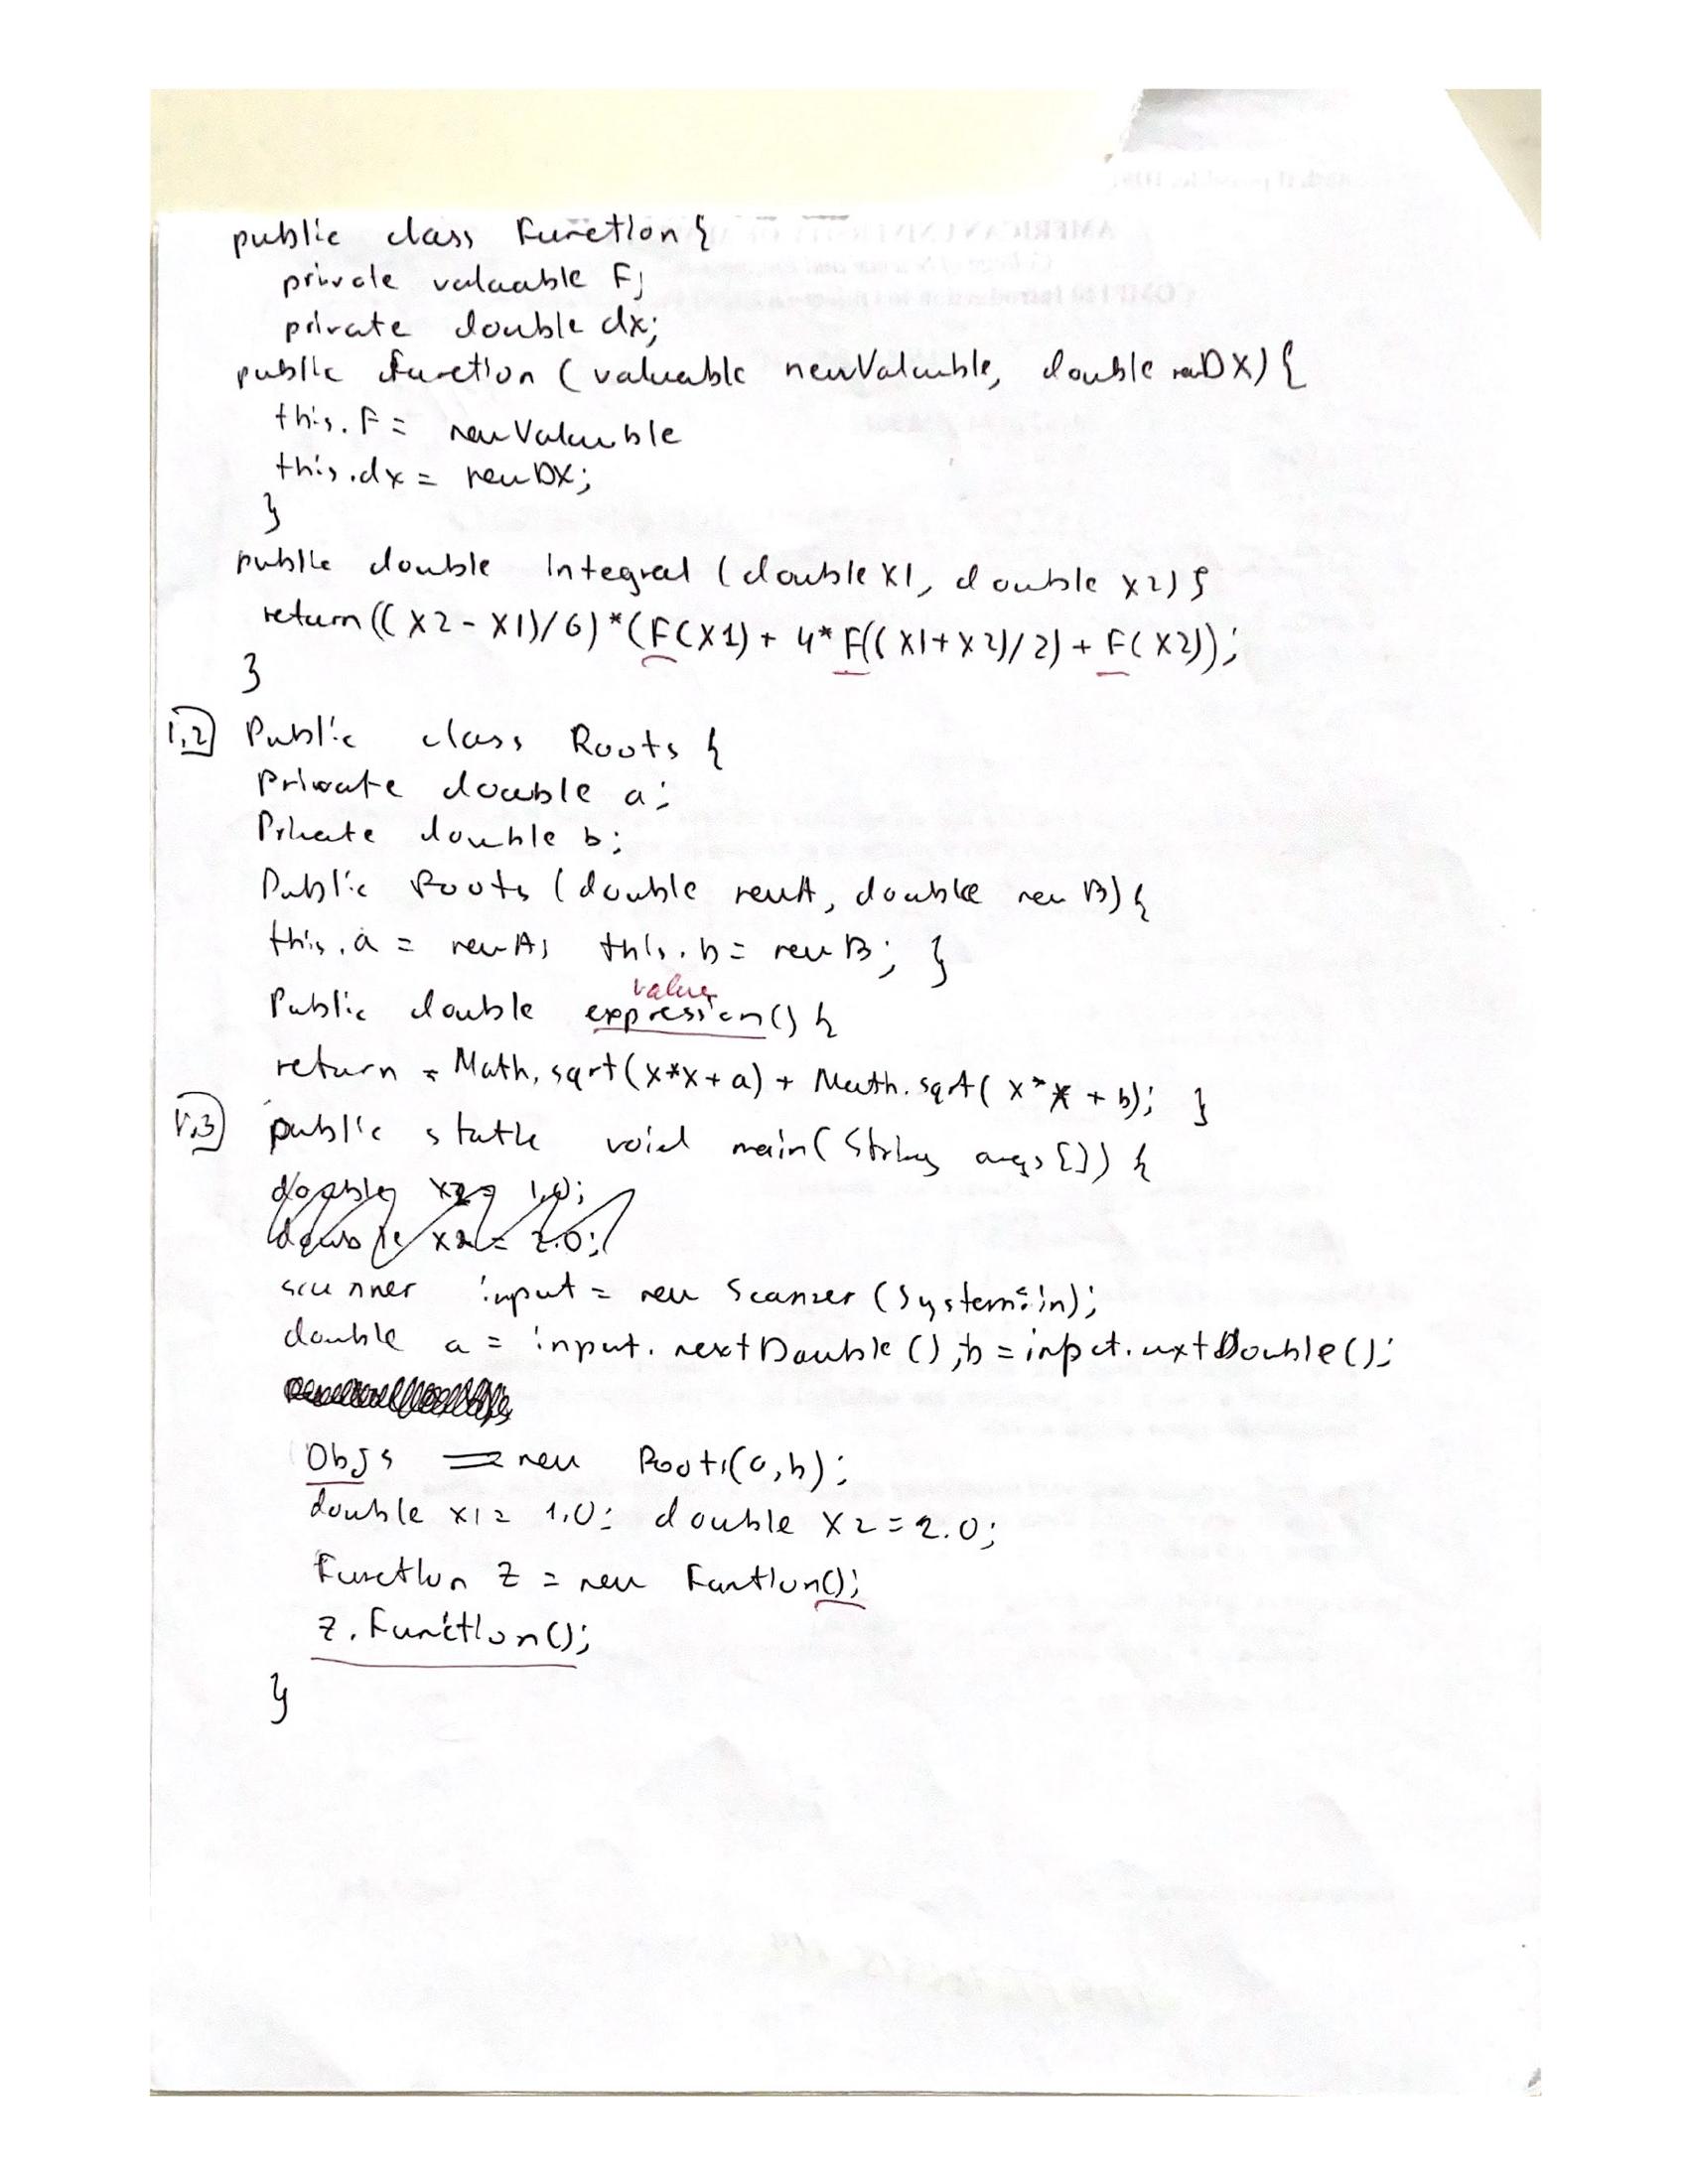 AMERICAN UNIVERSITY OF
public class Function {
private valuable F;
private double dx;
public function ( valuable newValuable, double newDX) {
this. F = newValuable
this.dx = newDX;
}
public double Integral ( double x1, double x2) {
return (( x2 - x1)/6) * (F(x1) + 4* F(( x1+x2)/2) + F( x2));
}
1.2) Public class Roots {
Private double a;
Private double b;
Public Roots ( double newA, double new B) {
this. a = newA; this. b = new B; }
value
Public double expression() {
return = Math. sqrt(x*x+a) + Math. sqrt( x*x + b); }
1.3) public static void main( String args []) {
double x2 = 1.0;
double x2 = 2.0;
scanner input = new Scanner (System.in);
double a = input. nextDouble (), b = inpct. nextDouble();
Objs = new Roots(a,b);
double x1 = 1.0; double x2 = 2.0;
Function z = new Function();
z. Function();
}